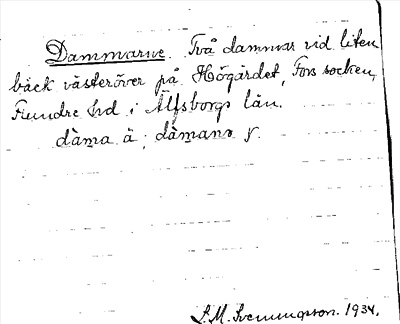 Dammarne. Två dammar vid liten
bäck västeröver på Högärdet, Fors socken,
Flundre hd i Älfsborgs län.
dama ä; damanr
S. M. Svenungsson. 1934.